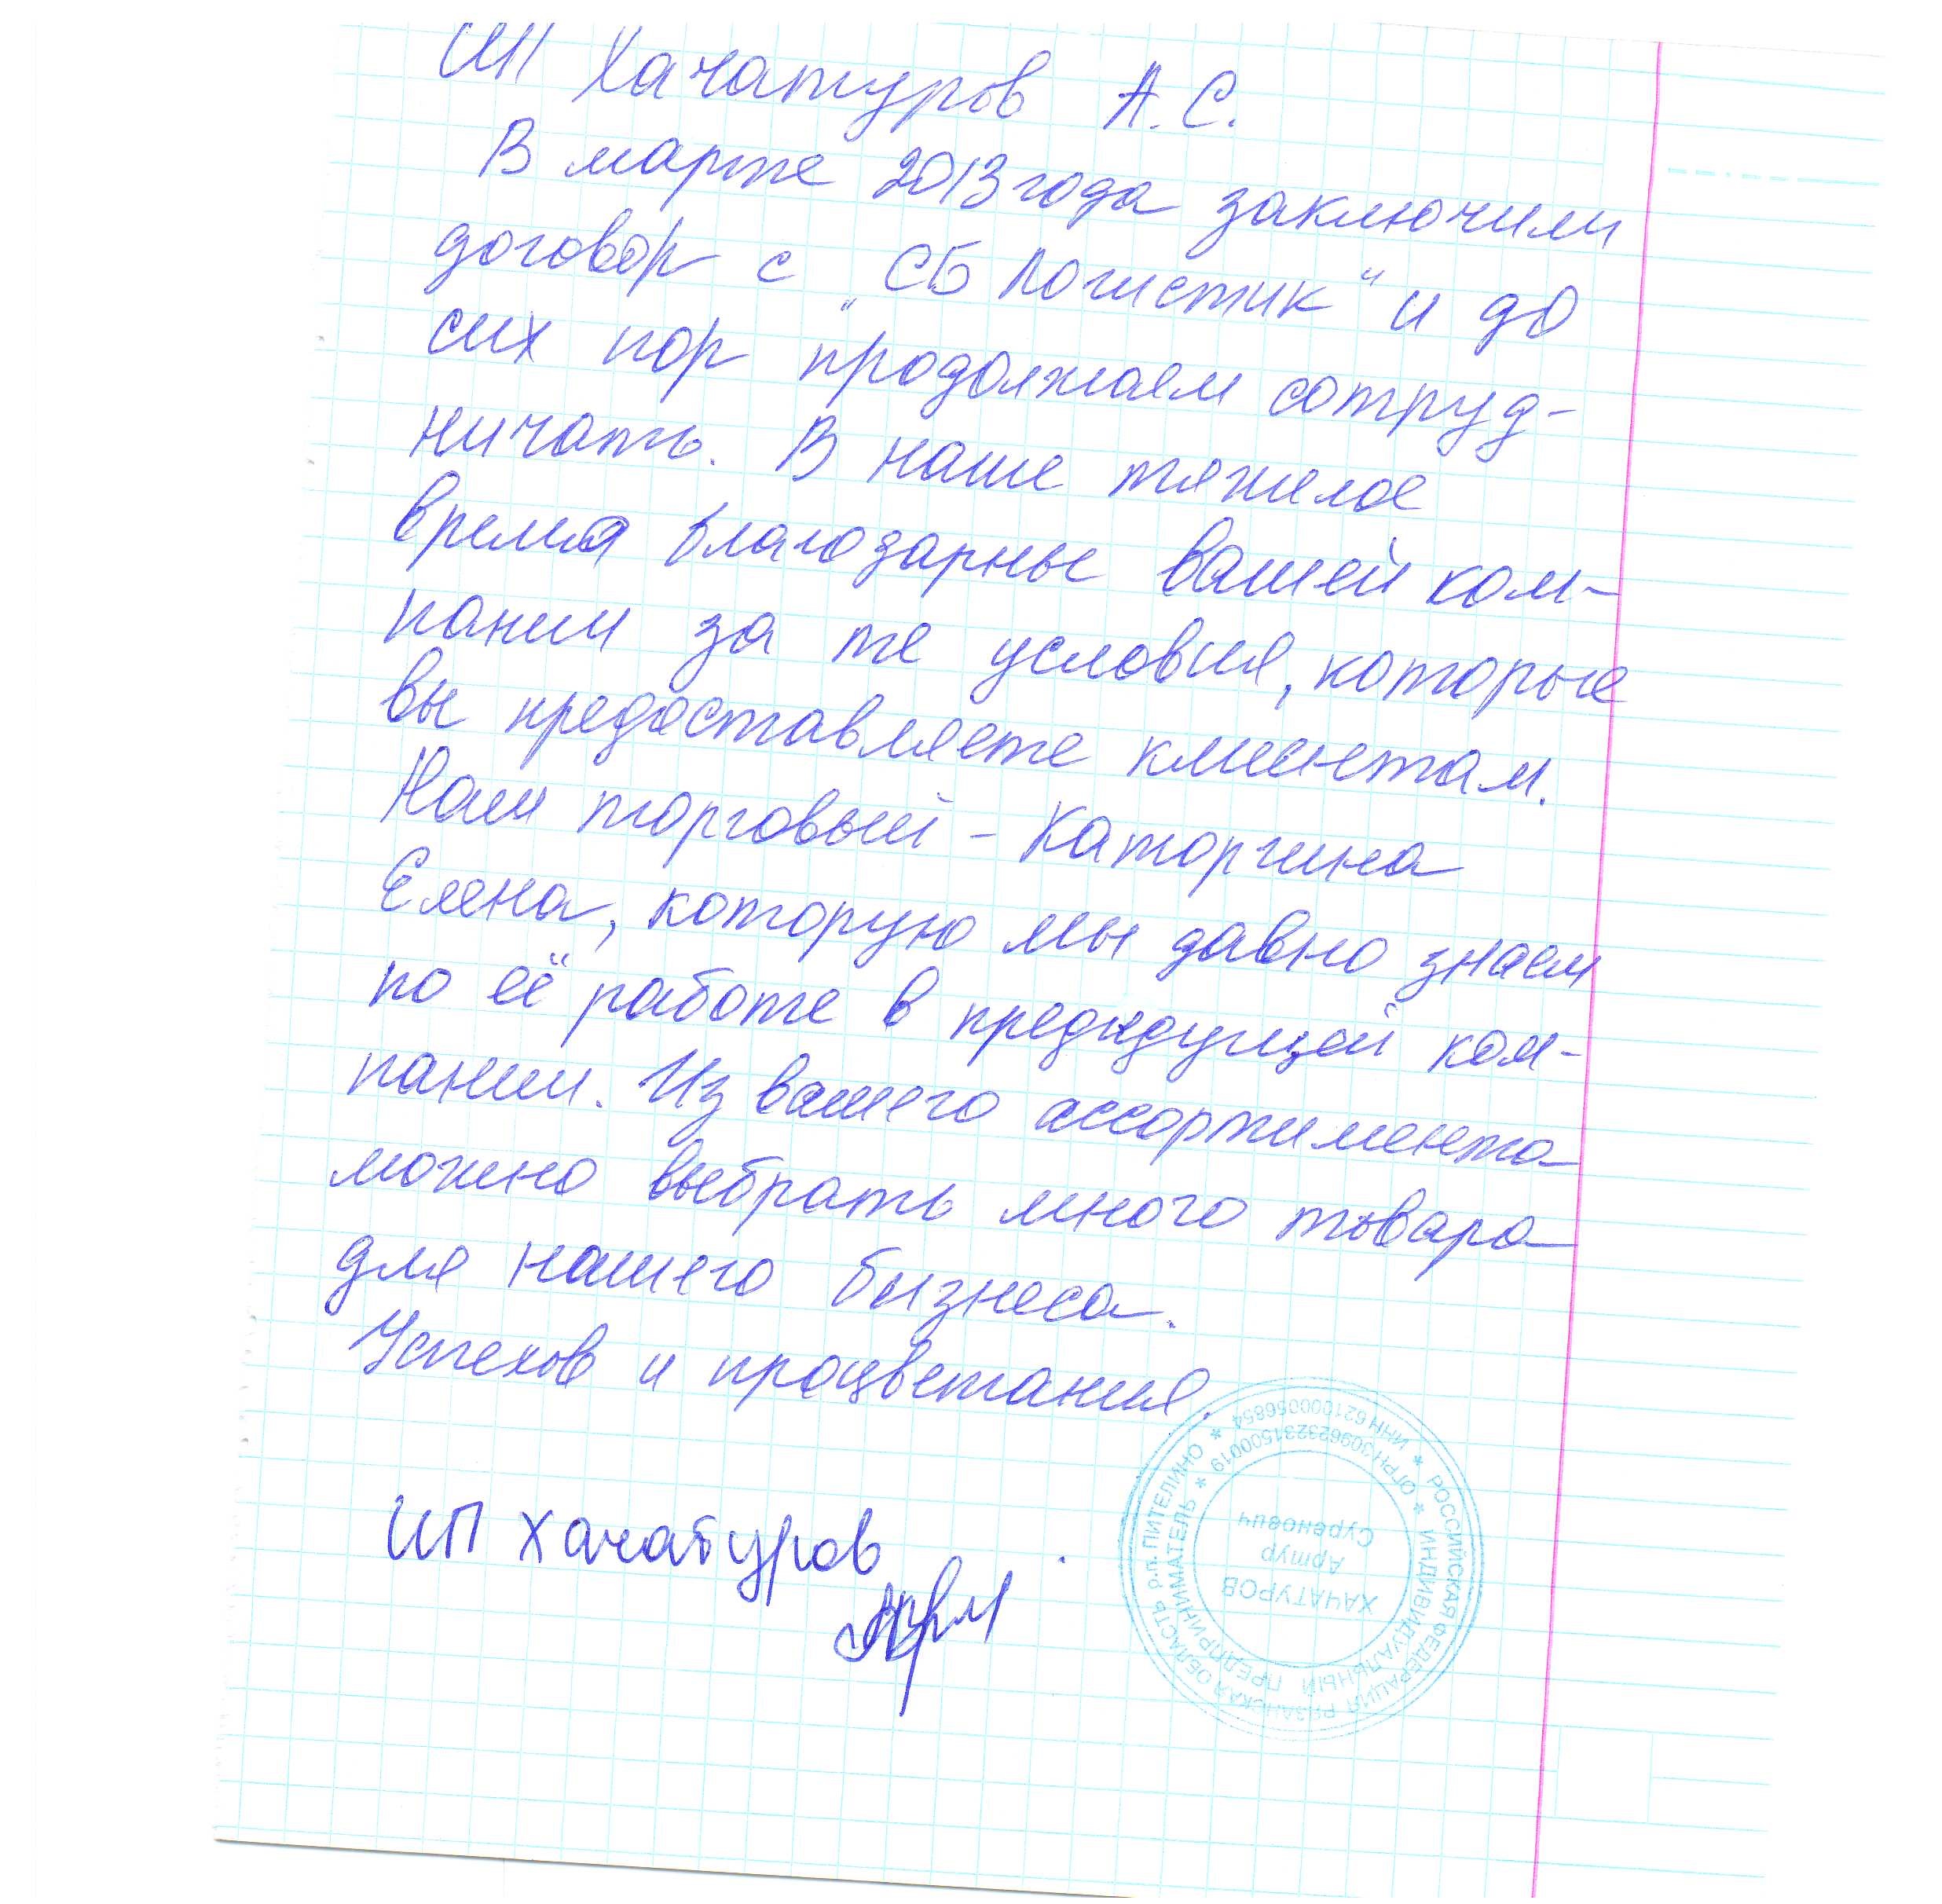 ИП Хачатуров А.С.
В марте 2013 года заключили
договор с „СБ Логистик“ и до
сих пор продолжаем сотруд-
ничать. В наше тяжелое
время благодарные вашей ком-
пании за те условия, которые
вы предоставляете клиентам.
Наш торговый - Каторгина
Елена, которую мы давно знаем
по её работе в предидущей ком-
пании. Из вашего ассортимента
можно выбрать много товара
для нашего бизнеса.
Успехов и процветания.
ИП Хачатуров
РОССИЙСКАЯ ФЕДЕРАЦИЯ РЯЗАНСКАЯ ОБЛАСТЬ р.п. ПИТЕЛИНО
* ИНН 621000056854 *
ИНДИВИДУАЛЬНЫЙ ПРЕДПРИНИМАТЕЛЬ
* ОГРН 309623231500019 *
ХАЧАТУРОВ
Артур
Суренович